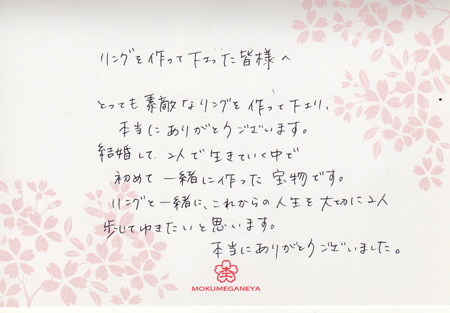 リングを作って下さった皆様へ
とっても素敵なリングを作って下さり、
本当にありがとうございます。
結婚して、2人で生きていく中で
初めて一緒に作った宝物です。
リングと一緒に、これからの人生を大切に2人
歩してゆきたいと思います。
本当にありがとうございました。
MOKUMEGANEYA